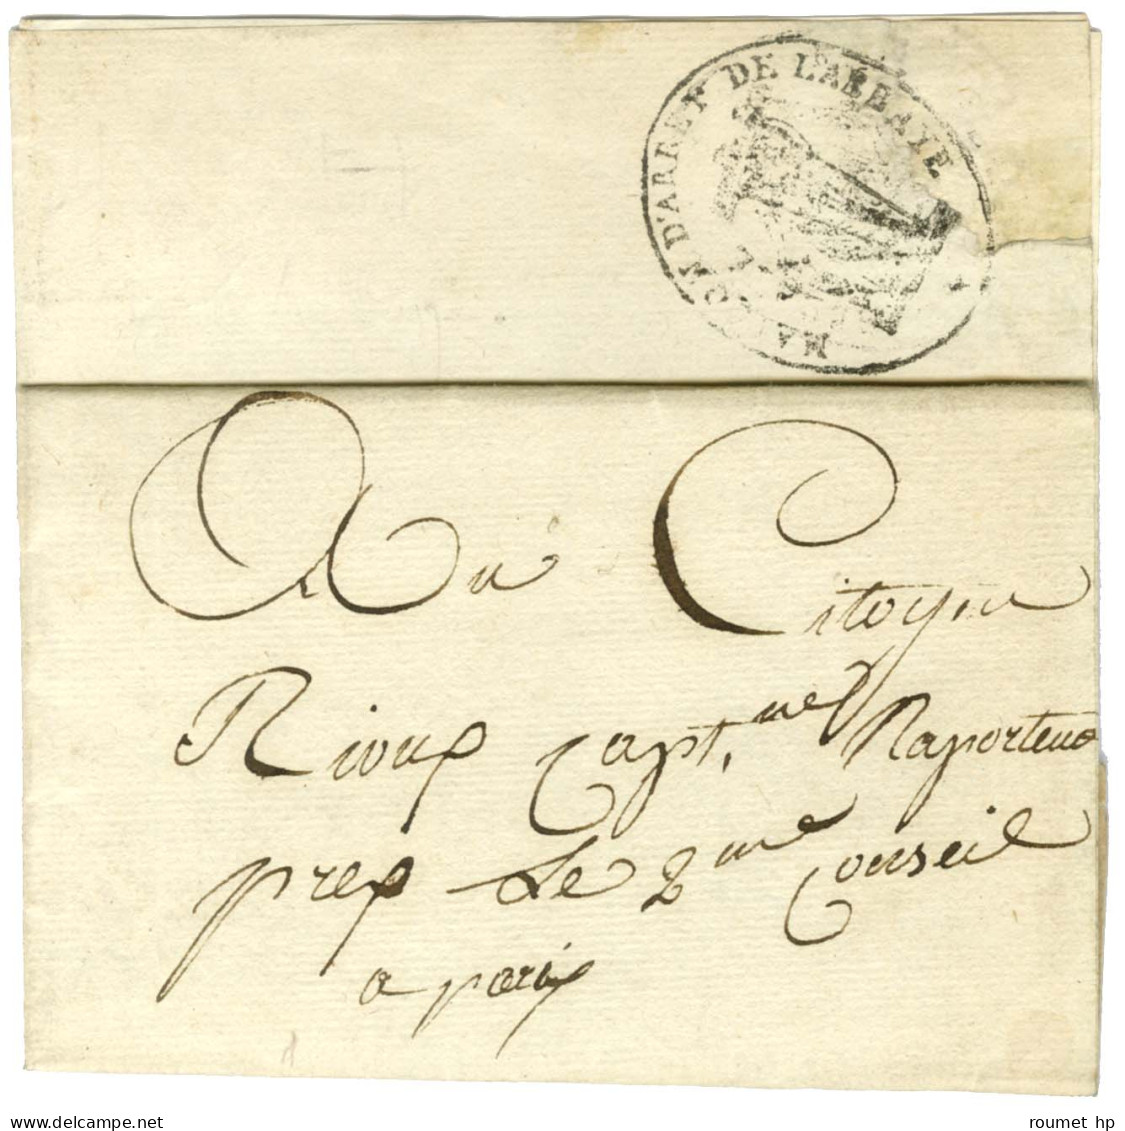 MAISON D'ARRET DE L'ABBAYE
Au Citoyen
Rioux Capt.nel Raporteur
pres Le 2me Conseil
a paris
www.delcampe.net
roumet hp